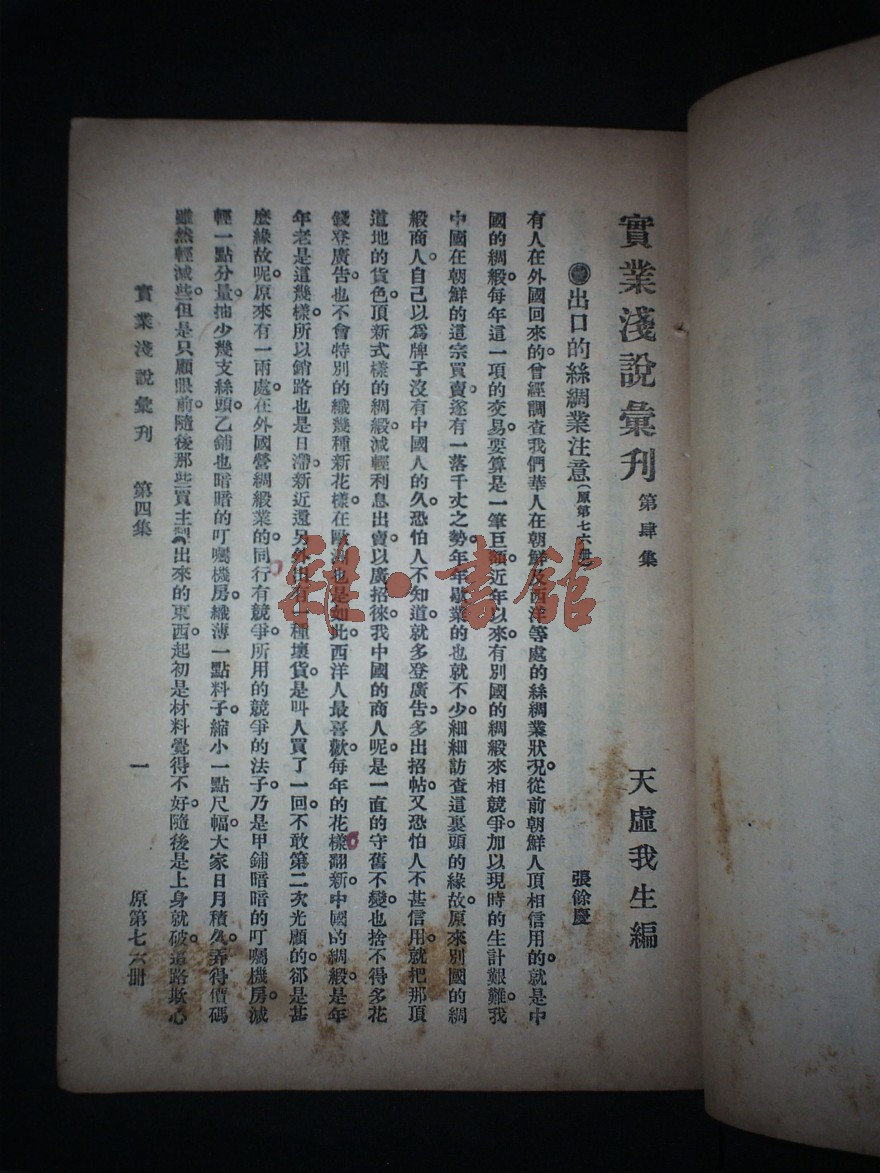 實業淺說彙刋 第肆集 天虛我生編
出口的絲綢業注意(原第七六冊) 張餘慶
有人在外國回來的。曾經調查我們華人在朝鮮及西洋等處的絲綢業狀況。從前朝鮮人頂相信用的。就是中
國的綢緞。每年這一項的交易。要算是一筆巨額。近年以來。有別國的綢緞來相競爭。加以現時的生計艱難。我
中國在朝鮮的這宗買賣。遂有一落千丈之勢。年年歇業的也就不少。細細訪查這裏頭的緣故。原來別國的綢
緞商人。自己以爲牌子沒有中國人的久。恐怕人不知道。就多登廣告。多出招帖。又恐怕人不甚信用。就把那頂
道地的貨色。頂新式樣的綢緞。減輕利息出賣。以廣招徠。我中國的商人呢。是一直的守舊不變。也捨不得多花
錢登廣告。也不會特別的織幾種新花樣。在歐洲也是如此。西洋人最喜歡每年的花樣翻新。中國的綢緞。是年
年老是這幾樣。所以銷路也是日滯。新近還另外出有一種壞貨。是叫人買了一回。不敢第二次光顧的。卻是甚
麽緣故呢。原來有一兩處。在外國營綢緞業的同行有競爭。所用的競爭的法子。乃是甲鋪暗暗的叮囑機房。減
輕一點分量。抽少幾支絲頭。乙鋪也暗暗的叮囑機房。織薄一點料子。縮小一點尺幅。大家日月積久。弄得價碼
雖然輕減些。但是只顧眼前。隨後那些買主。出來的東西。起初是材料覺得不好。隨後是上身就破。這路欺心
實業淺說彙刋 第四集 一 原第七六冊
雜·書館